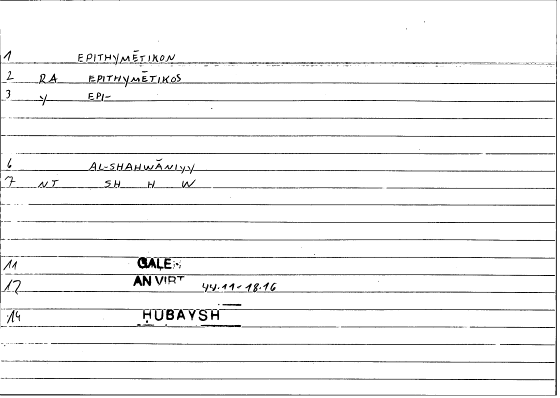 1 EPITHYMĒTIKON
2 RA EPITHYMĒTIKOS
3 Y EPI-
6 AL-SHAHWĀNIYY
7 NT SH H W
11 GALE
12 AN VIRT 44.11-18.16
14 ḤUBAYSH